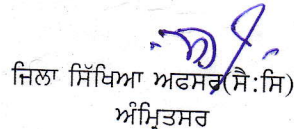 ਜਿਲਾ ਸਿੱਖਿਆ ਅਫਸਰ(ਸੈ:ਸਿ)
ਅੰਮ੍ਰਿਤਸਰ